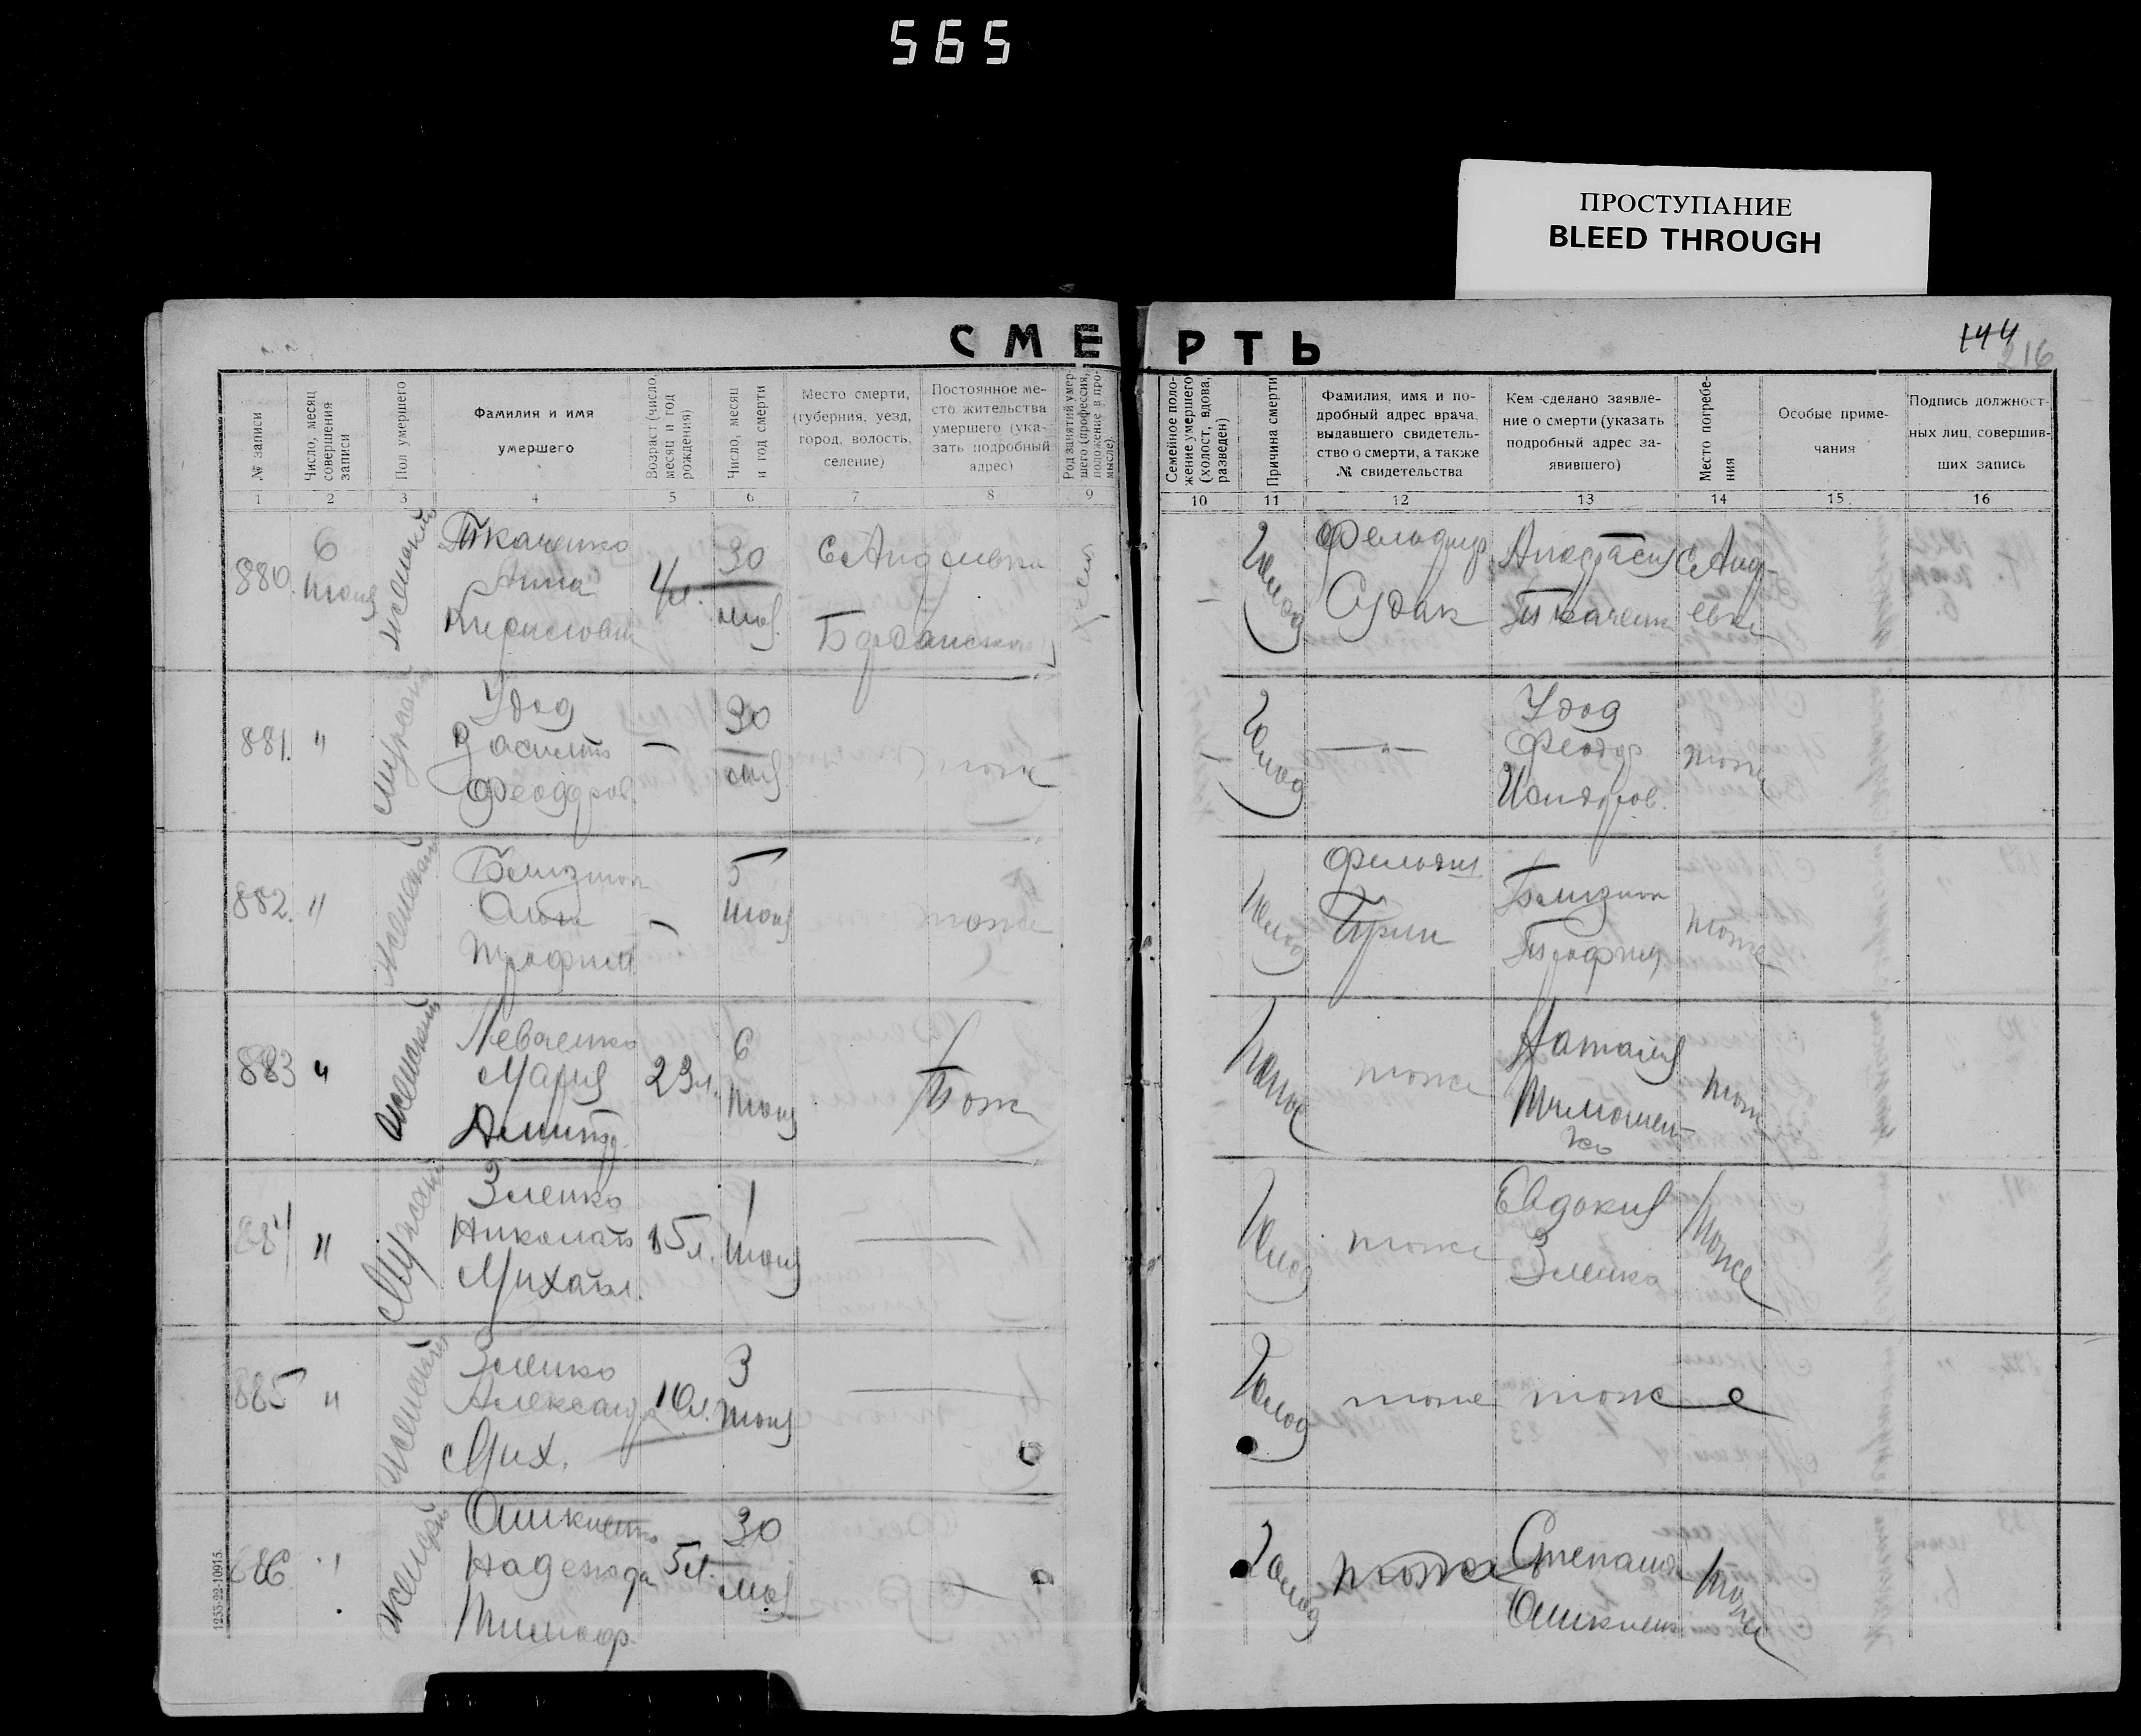 565
ПРОСТУПАНИЕ
BLEED THROUGH
СМЕ РТЬ
144
216
№ записи
Число, месяц совершения записи
Пол умершего
Фамилия и имя
умершего
Возраст (число, месяц и год рождения)
Число, месяц и год смерти
Место смерти,
(губерния, уезд,
город, волость,
селение)
Постоянное ме-
сто жительства
умершего (ука-
зать подробный
адрес)
Род занятий умер-
шего (профессия,
положение в про-
мысле).
Семейное поло-
жение умершего
(холост, вдова,
разведен)
Причина смерти
Фамилия, имя и по-
дробный адрес врача,
выдавшего свидетель-
ство о смерти, а также
№ свидетельства
Кем сделано заявле-
ние о смерти (указать
подробный адрес за-
явившего)
Место погребе-
ния
Особые приме-
чания
Подпись должност-
ных лиц, совершив-
ших запись
1 2 3 4 5 6 7 8 9 10 11 12 13 14 15 16
880. 6 июня женский
Ткаченко
Анна
4 л.
30
мая
Голод
Судак
Анастасия
Ткаченк
881. " мужской
Удод
Василий
Феодоров.
—
30
мая
тоже
Голод
— " —
Удод
Феодор
тоже
882. " женский
Трофим
—
5
июня
тоже
Голод
Трофим
тоже
883 " женский
Мария
Дмитр.
23 л.
6
июня
тоже
тоже
Наталия
Тимошен-
ко
тоже
884 " мужской
Зленко
Николай
Михайл.
15 л.
1
июня
Голод
тоже
Евдокия
Зленко
тоже
885 " женский
Зленко
Александра
Мих.
10 л.
3
июня
Голод
тоже
тоже
886 " женский
Надежда
5 л.
30
мая
Голод
тоже
тоже
1253-22-10915.